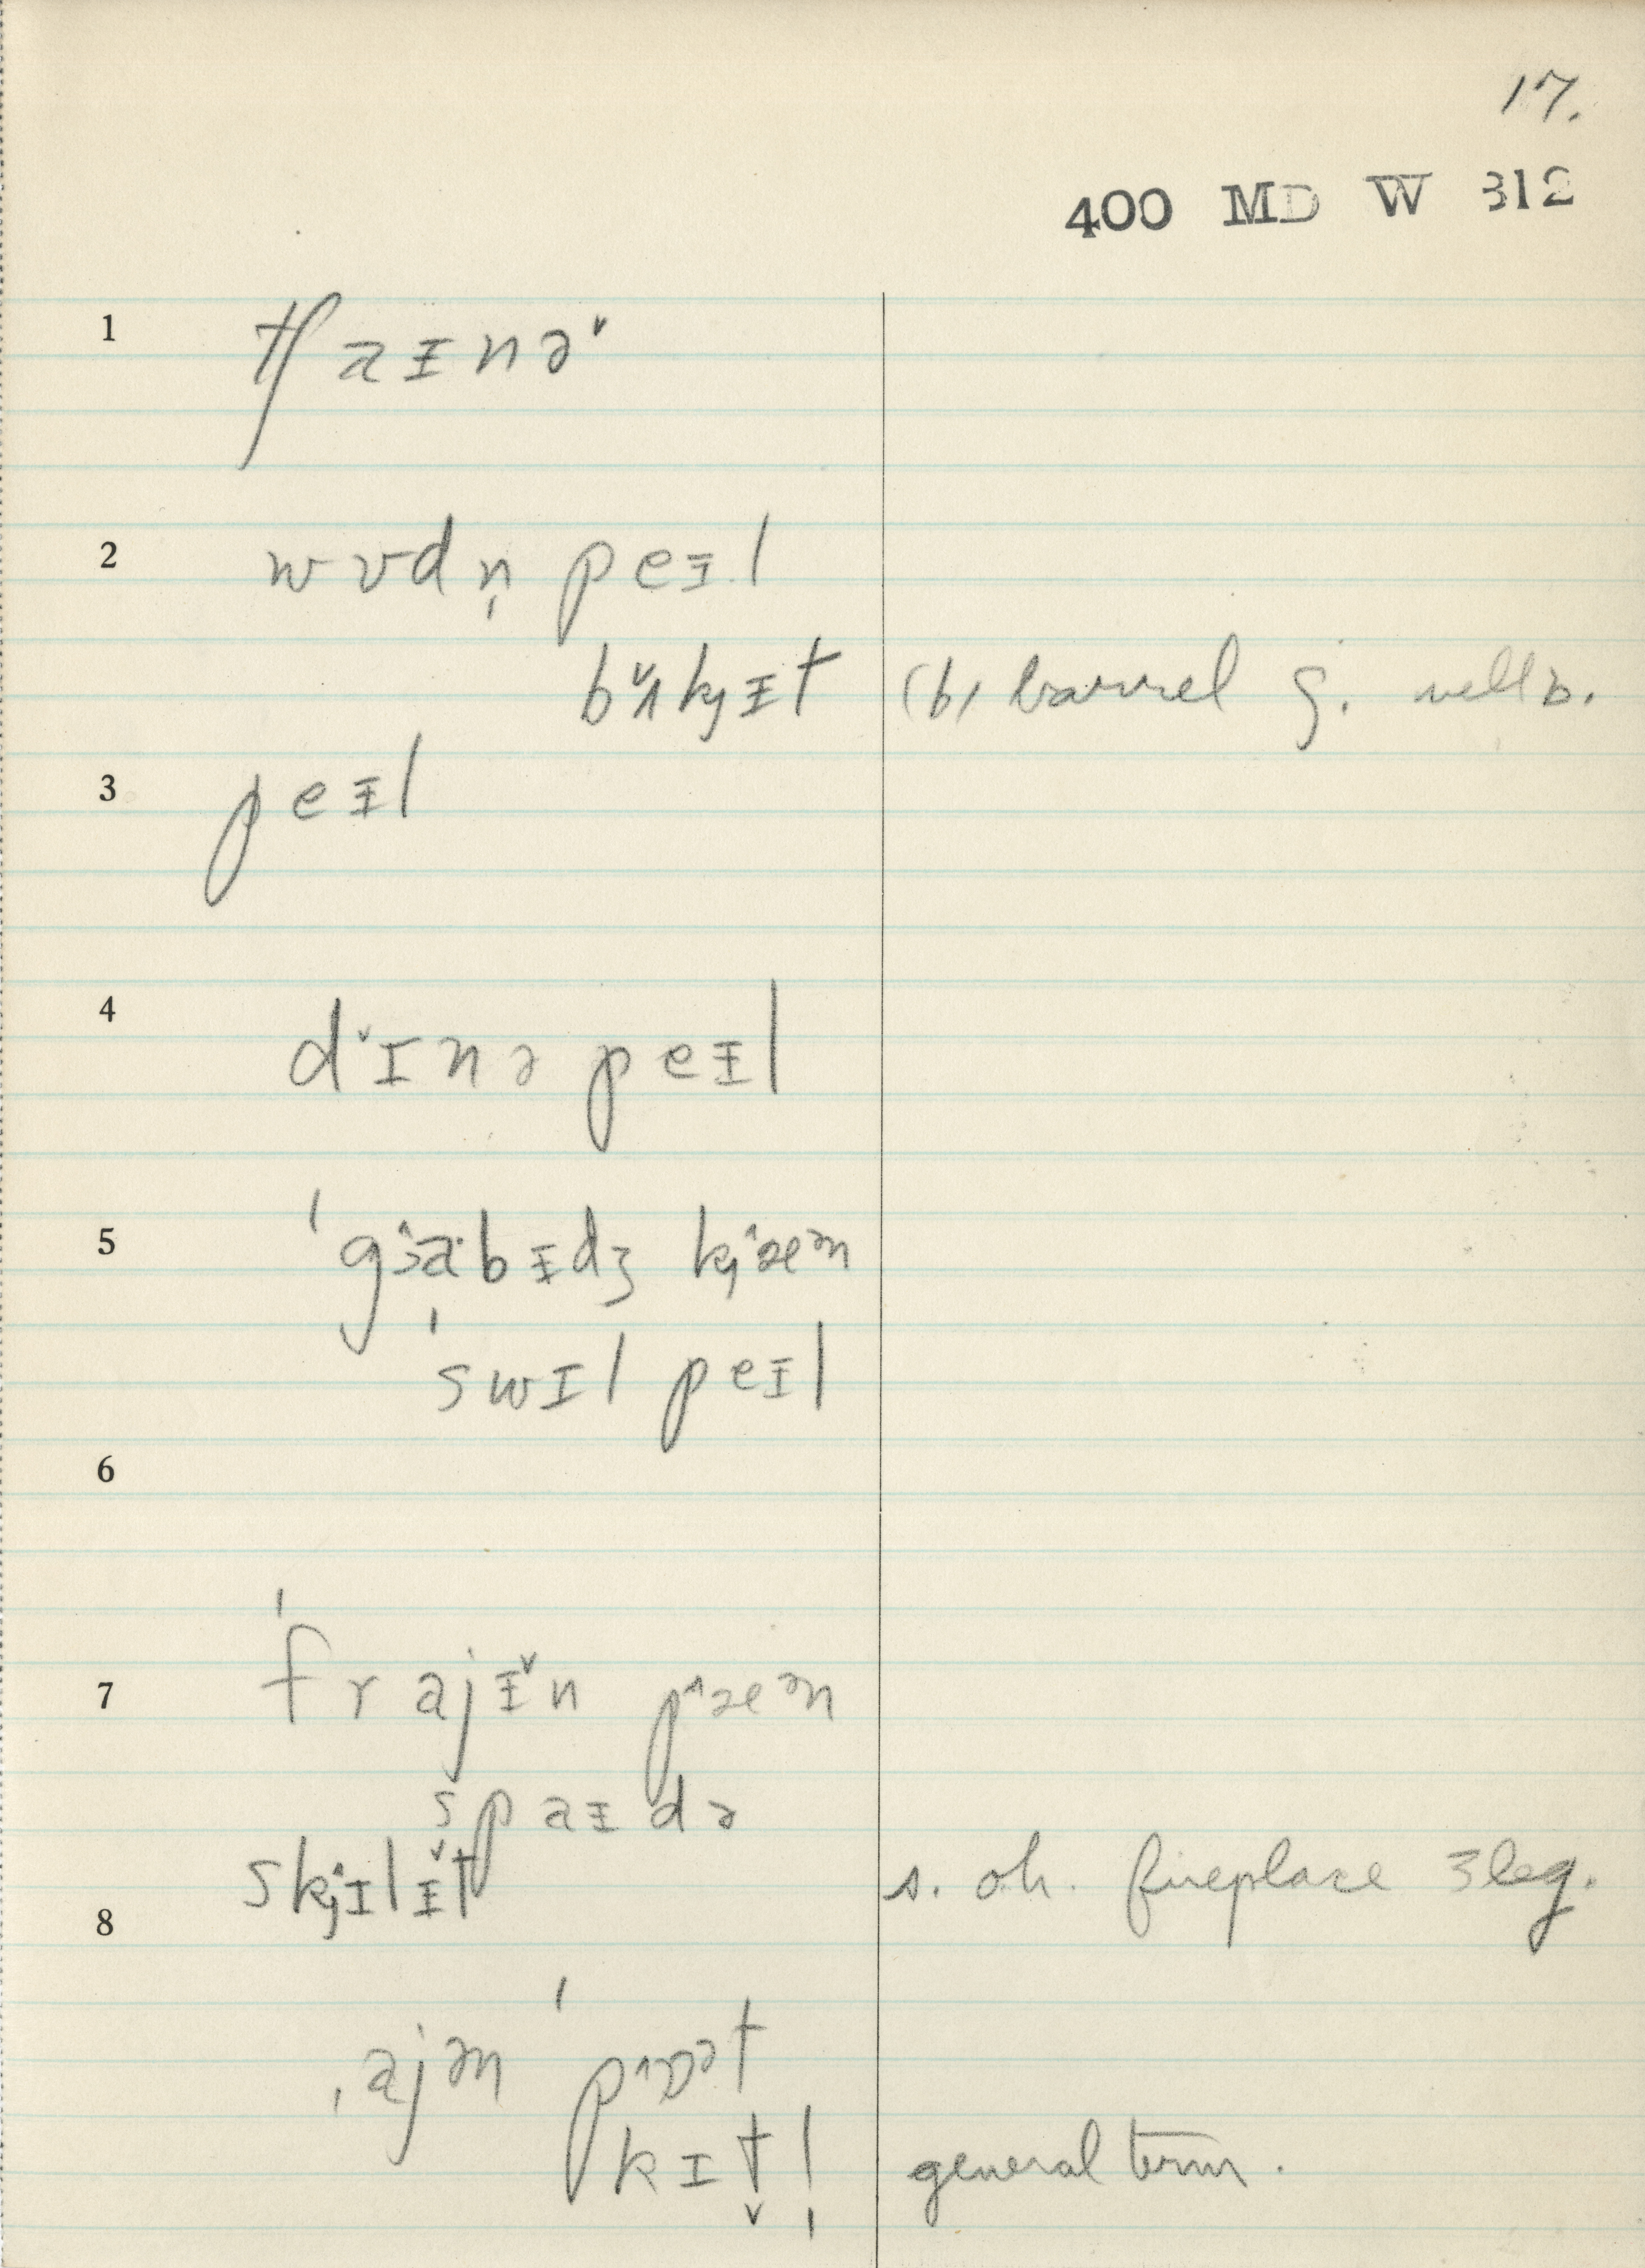 17.
400 MD W 312
1 tʃaɪnə˅
2 wʊdn̩ peɪl
b˅ʌkɟɪt (b) barrel
3 peɪl
4 d˅ɪnə peɪl
5 ˈgɜ˄a·bɪdʒ kɟ˄æᵊm
ˈswɪl peɪl
6
7 ˈfrajɪ˅n p˄æᵊn
spaɪdə
8 skɟ˄ɪlɪ˅t s. oh. fireplace 3 leg.
ˌajən ˈp˄ɒᵊt
kɪt̬l̩ general term.